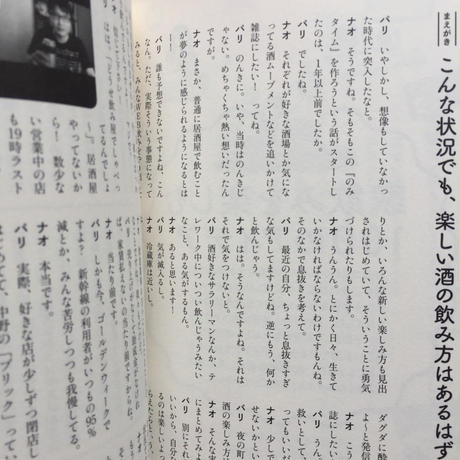 まえがき
こんな状況でも、楽しい酒の飲み方はあるはず
パリ いやしかし、想像もしていなかっ
た時代に突入したなと。
ナオ そうですね。そもそもこの『のみ
タイム』を作ろうという話がスタートし
たのは、1年以上前でしたか。
パリ でしたね。
ナオ それぞれが好きな酒場とか気にな
ってる酒ムーブメントなどを追いかけて
雑誌にしたい! ってね。
パリ のんきに。いや、当時はのんきじ
ゃない。めちゃくちゃ熱い想いだったん
ですが。
ナオ まさか、普通に居酒屋で飲むこと
が夢のように感じられるようになるとは
パリ 誰も予想できないですよね、こん
なん。ただ、実際そういう事態になって
みると、みんなWEB飲みやった
りとか、いろんな新しい楽しみ方も見出
されはじめていて、そういうことに勇気
づけられたりもします。
ナオ うんうん。とにかく日々、生きて
いかなければならないわけですもんね。
そのなかで息抜きを考えて。
パリ 最近の自分、ちょっと息抜きすぎ
な気もしてますけどね。逆にもう、何か
と飲んじゃう。
ナオ はは。そうなんですよね。それは
それで気をつけないと。
パリ お酒好きなサラリーマンなんか、テ
レワーク中についつい飲んじゃうみたい
なこと、ある気がするもん。
ナオ あると思います!
パリ 気が滅入るし。
ナオ 冷蔵庫は近いし。
ダグダに酔
よ〜と発信
ナオ こう
誌にしたい
パリ うん
救いとして、
ってもいい
ナオ 少しで
せないかと
パリ 夜の町
酒の楽しみ方
ナオ そんな
にまとめてみよ
パリ 別にそれ
いいから、自分た
るのは楽しいよ
らえたらと、う
パリ は、「どうせ飲み屋でしゃべっ
てるんでしょ
』居酒屋
やってないか
ら 数少な
い営業中の店
も19時ラスト
ナオ 当たり前
パリ しかも今、ゴールデンウィークで
すよ? 新幹線の利用者がいつもの95%
減とか、みんな苦労しつつも我慢してる。
ナオ 本当です。
パリ 実際、好きな店が少しずつ閉店し
はじめてて、中野の「ブリック」って、